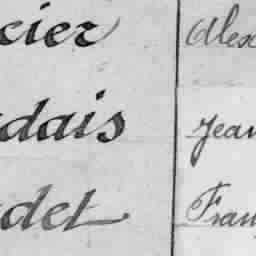 cier Alex
dais Jean
det Fran